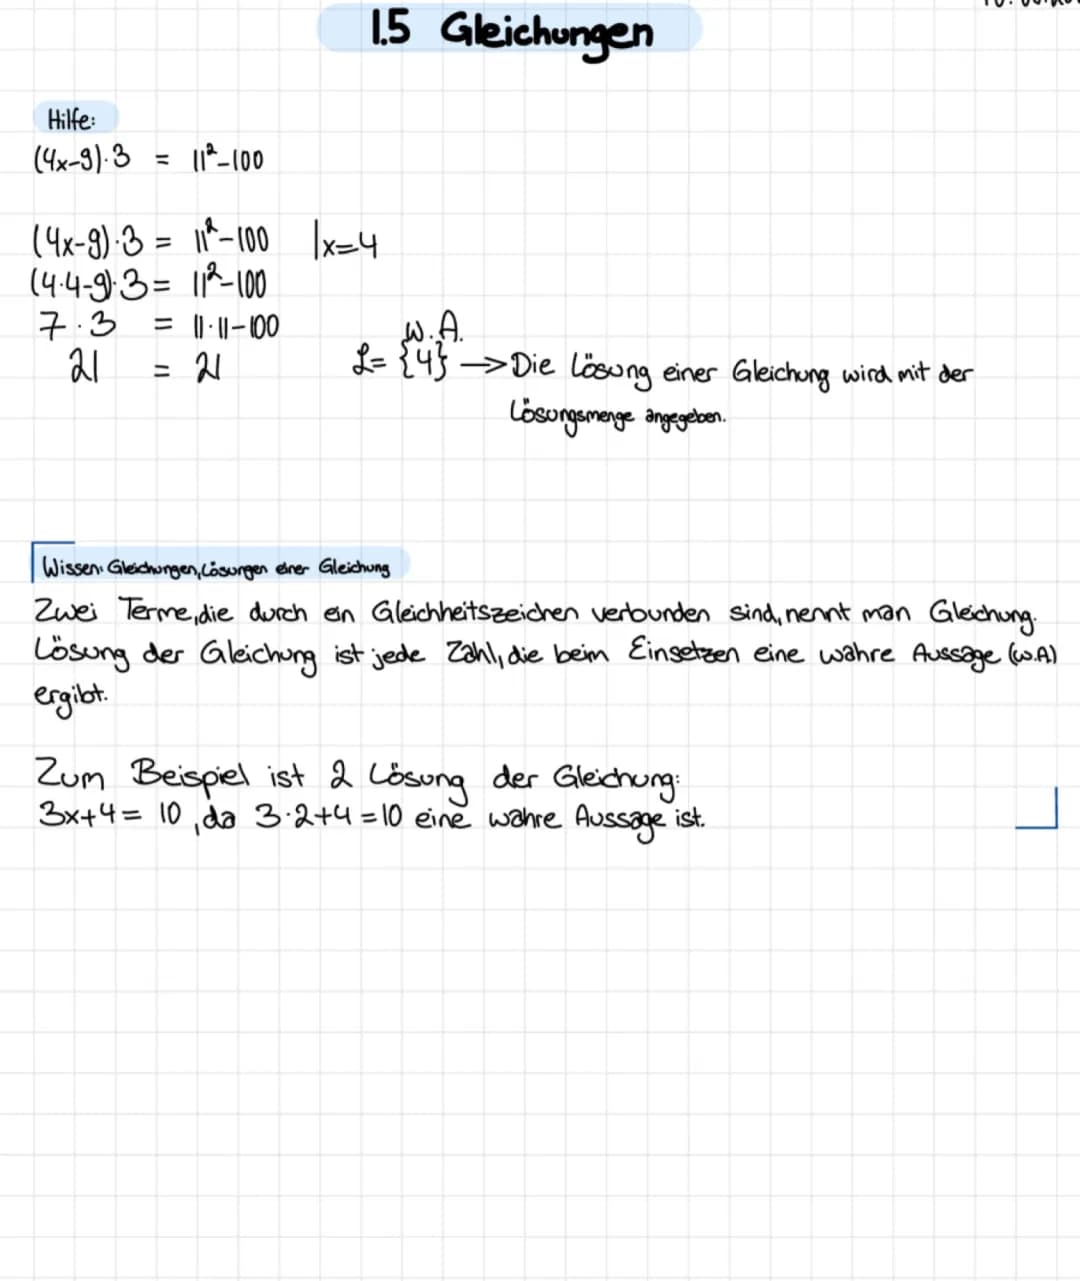 1.5 Gleichungen
Hilfe:
(4x-9)·3 = 11²-100
(4x-9)·3 = 11²-100 |x=4
(4·4-9)·3 = 11²-100
7·3 = 11·11-100
W.A.
21 = 21 L= {4} → Die Lösung einer Gleichung wird mit der
Lösungsmenge angegeben.
Wissen: Gleichungen, Lösungen einer Gleichung
Zwei Terme, die durch ein Gleichheitszeichen verbunden sind, nennt man Gleichung.
Lösung der Gleichung ist jede Zahl, die beim Einsetzen eine wahre Aussage (w.A)
ergibt.
Zum Beispiel ist 2 Lösung der Gleichung:
3x+4= 10, da 3·2+4=10 eine wahre Aussage ist.